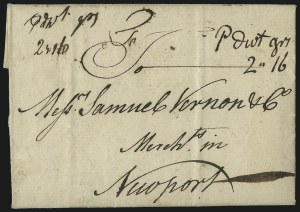 P dwt gr
2 " 16
To
Messrs. Samuel Vernon & Co
Merchts in
Newport